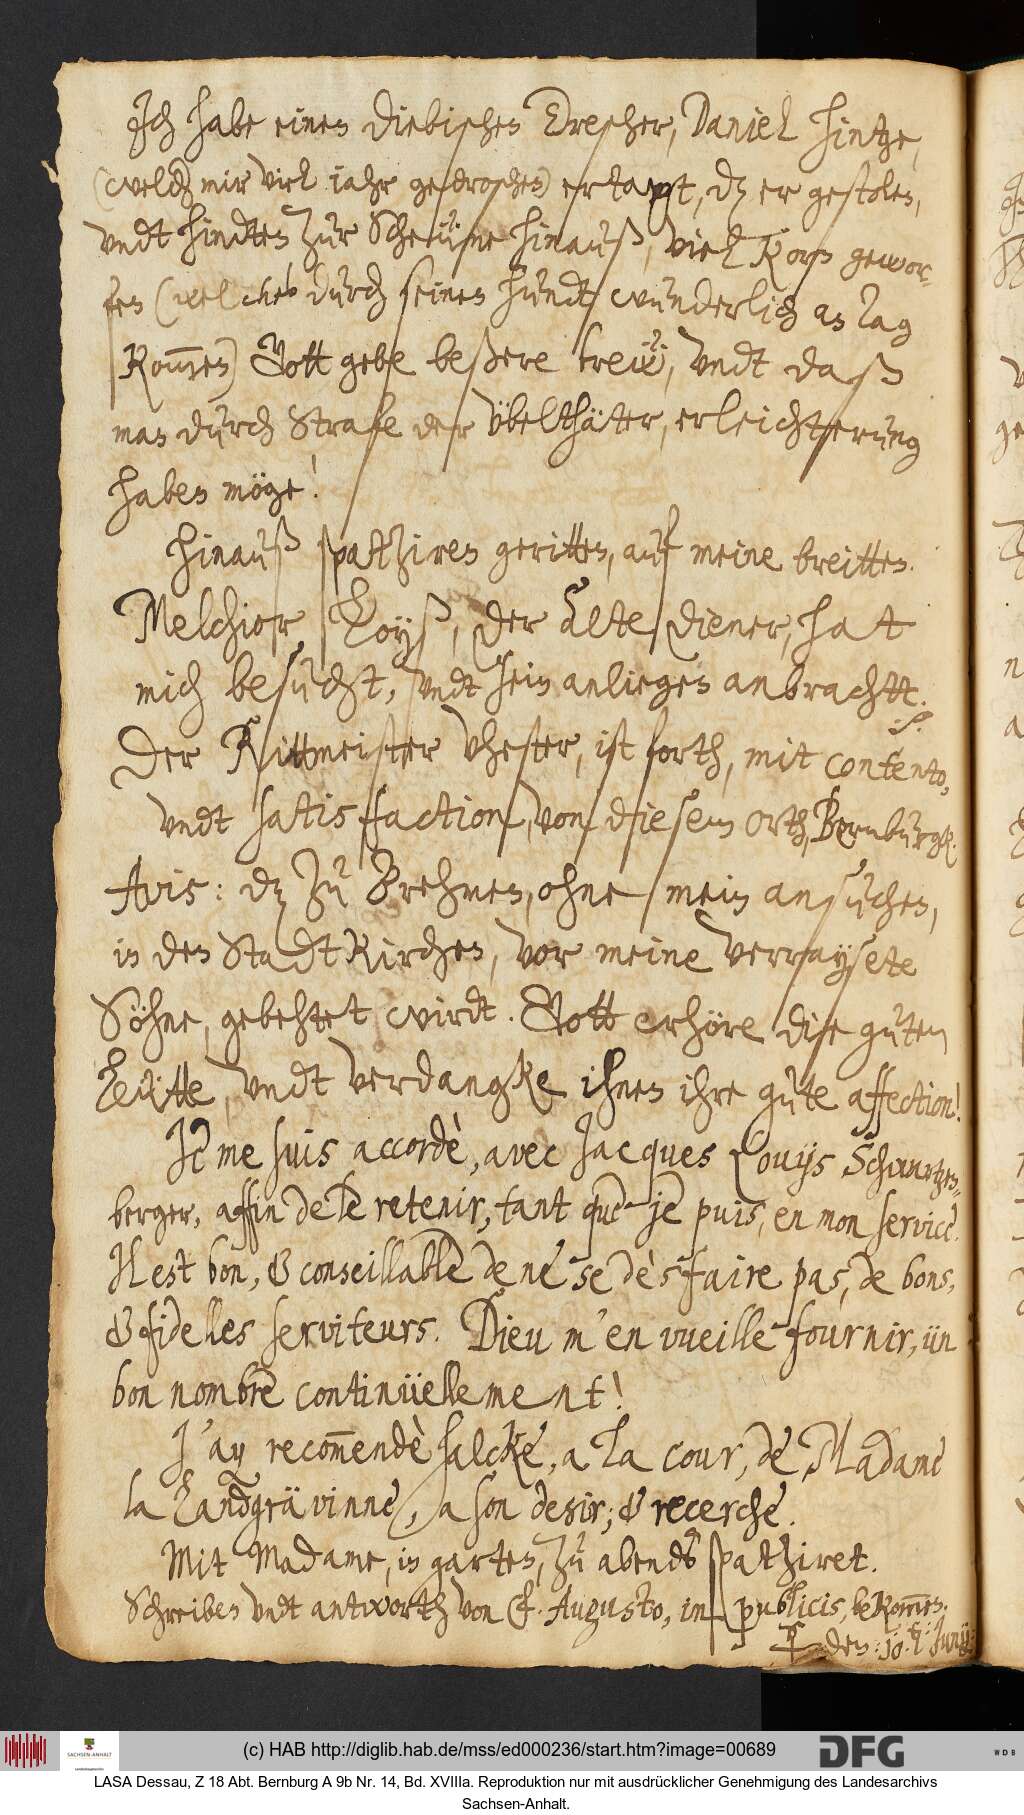 Ich habe einen diebischen Drescher, Daniel Hintze,
(welch mir viel iahr gedroschen) ertapt, dz er gestolen,
vndt hindten zur Scheüne hinauß, viel Korn gewor-
fen (welches durch seinen hundt wunderlich an Tag
Kom̅en) Gott gebe beßere trew, vndt daß
man durch Strafe der übelthäter, erleichterung
haben möge!
Hinauß spatziren geritten, auf meine breitten.
Melchior Loyß, der alte diener, hat
mich besucht, vndt sein anliegen anbrachtt.
Der Rittmeister Vhester, ist forth, mit contento,
vndt satisfaction, von diesem orth, Bernburgk.
Avis: dz zu Brehmen, ohne mein ansuchen,
in den Stadt Kirchen, vor meine verraysete
Söhne, gebehtet wirdt. Gott erhöre dise guten
Leütte, vndt verdangke ihnen ihre gute affection!
Je me suis accordè, avec Jacques Louys Schwartzen-
berger, affin de le retenir, tant que je puis, en mon service.
Il est bon, & conseillable de ne se dèsfaire pas, de bons,
& fidelles serviteurs. Dieu m'en vueille fournir, ün
bon nombre continüellement!
J'ay recom̅endè Halcke, a la cour, de Madame
la Landgrävinne, a son desir; & recerche.
Mit Madame, in garten, zu abends spatziret.
Schreiben vndt antworth von F. Augusto, in publicis, bekom̅en.
den: 10. Junij:
(c) HAB http://diglib.hab.de/mss/ed000236/start.htm?image=00689
SACHSEN-ANHALT
DFG
WDB
LASA Dessau, Z 18 Abt. Bernburg A 9b Nr. 14, Bd. XVIIIa. Reproduktion nur mit ausdrücklicher Genehmigung des Landesarchivs
Sachsen-Anhalt.